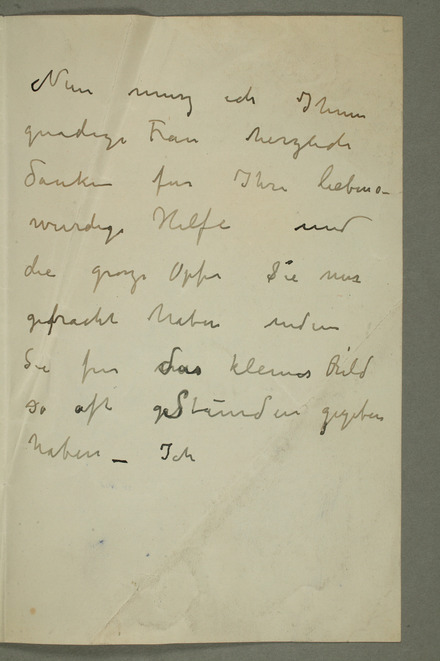 Nun muss ich Ihnen
gnadige Frau herzlich
danken fur Ihre liebens-
wurdige Hilfe und
die grosze Opfer Sie mir
gebracht haben indem
Sie fur das kleines Bild
so oft gestanden gegeben
haben _ Ich